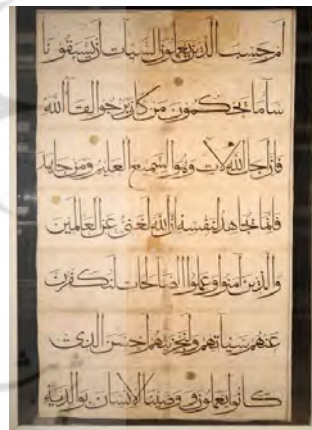 ام حسب الذين يعملون السيئات ان يسبقونا
ساء ما يحكمون من كان يرجوا لقاء الله
فان اجل الله لات وهو السميع العليم ومن جاهد
فانما يجاهد لنفسه ان الله لغني عن العالمين
والذين امنوا وعملوا الصالحات لنكفرن
عنهم سيئاتهم ولنجزينهم احسن الذي
كانوا يعملون ووصينا الانسان بوالديه